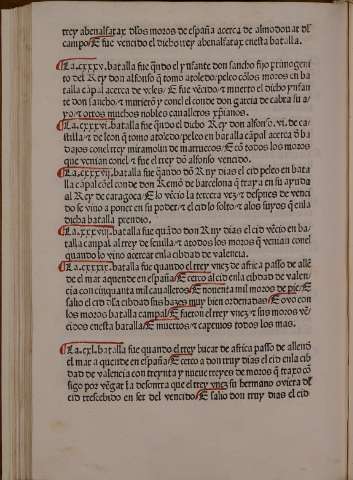 trey abenalfatax dlos moros de españa acerca de almodouar dl
campo/ E fue vencido el dicho rey abenalfatax enesta batalla.
La .cxxxv. batalla fue qñdo el ynfante don sancho fijo primogeni
to del Rey don alfonso q̃ tomo atoledo/ peleo cõlos moros en ba
talla cãpal acerca de vcles/ E fue vẽcido/ ⁊ muerto el dicho ynfan
te don sancho/ ⁊ muriero y conel el conde don garcia de cabra su a
yo/ ⁊ otros muchos nobles caualleros xp̃ianos.
La .cxxxvi. batalla fue qñdo el dicho Rey don alfonso .vi. de ca
stilla/ ⁊ de leon q̃ tomo atoledo/ peleo en batalla cãpal acerca d̃ ba
dajos conel trey miramolin de marruecos/ E cõ todos los moros
que venian conel/ ⁊ fue el rey dõ alfonso vencido.
La .cxxxvij. batalla fue qñado dõ Ruy dias el cid peleo en bata
lla cãpal cõel conde don Remõ de barcelona q̃ traya en su ayuda
al Rey de caragoça/ E lo vẽcio la tercera vez/ ⁊ despues de venci
do se vino a poner en su poder/ ⁊ el cid lo solto/ ⁊ alos suyos q̃ enla
dicha batalla prendio.
La .cxxxviij. batalla fue quãdo don Ruy dias el cid vẽcio en ba
talla canpal al trey de seuilla/ ⁊ atodos los moros q̃ venian conel
quando lo vino acercar enla cibdad de valencia.
La .cxxxix. batalla fue quando el trey vnez de africa passo de allẽ
de el mar aquende en españa/ E cerco al cid enla cibdad de valen
cia con cinquanta mil caualleros/ E nouenta mil moros de pie/ E
salio el cid dsa cibdad sus hazes muy bien ordenadas/ E ouo con
los moros batalla campal/ E fueron el trey vnez/ ⁊ sus moros vẽ
cidos enesta batalla/ E muertos/ ⁊ captiuos todos los mas.
La .cxl. batalla fue quando el trey bucar de africa passo de allend̃
el mar a quende en españa/ E cerco a don ruy dias el cid enla cib
dad de valencia con treynta y nueue treyes de moros q̃ traxo cõ
sigo por vẽgar la desonrra que el trey vnez su hermano ouiera del
cid trescebido en ser del vencido/ E salio don ruy dias el cid